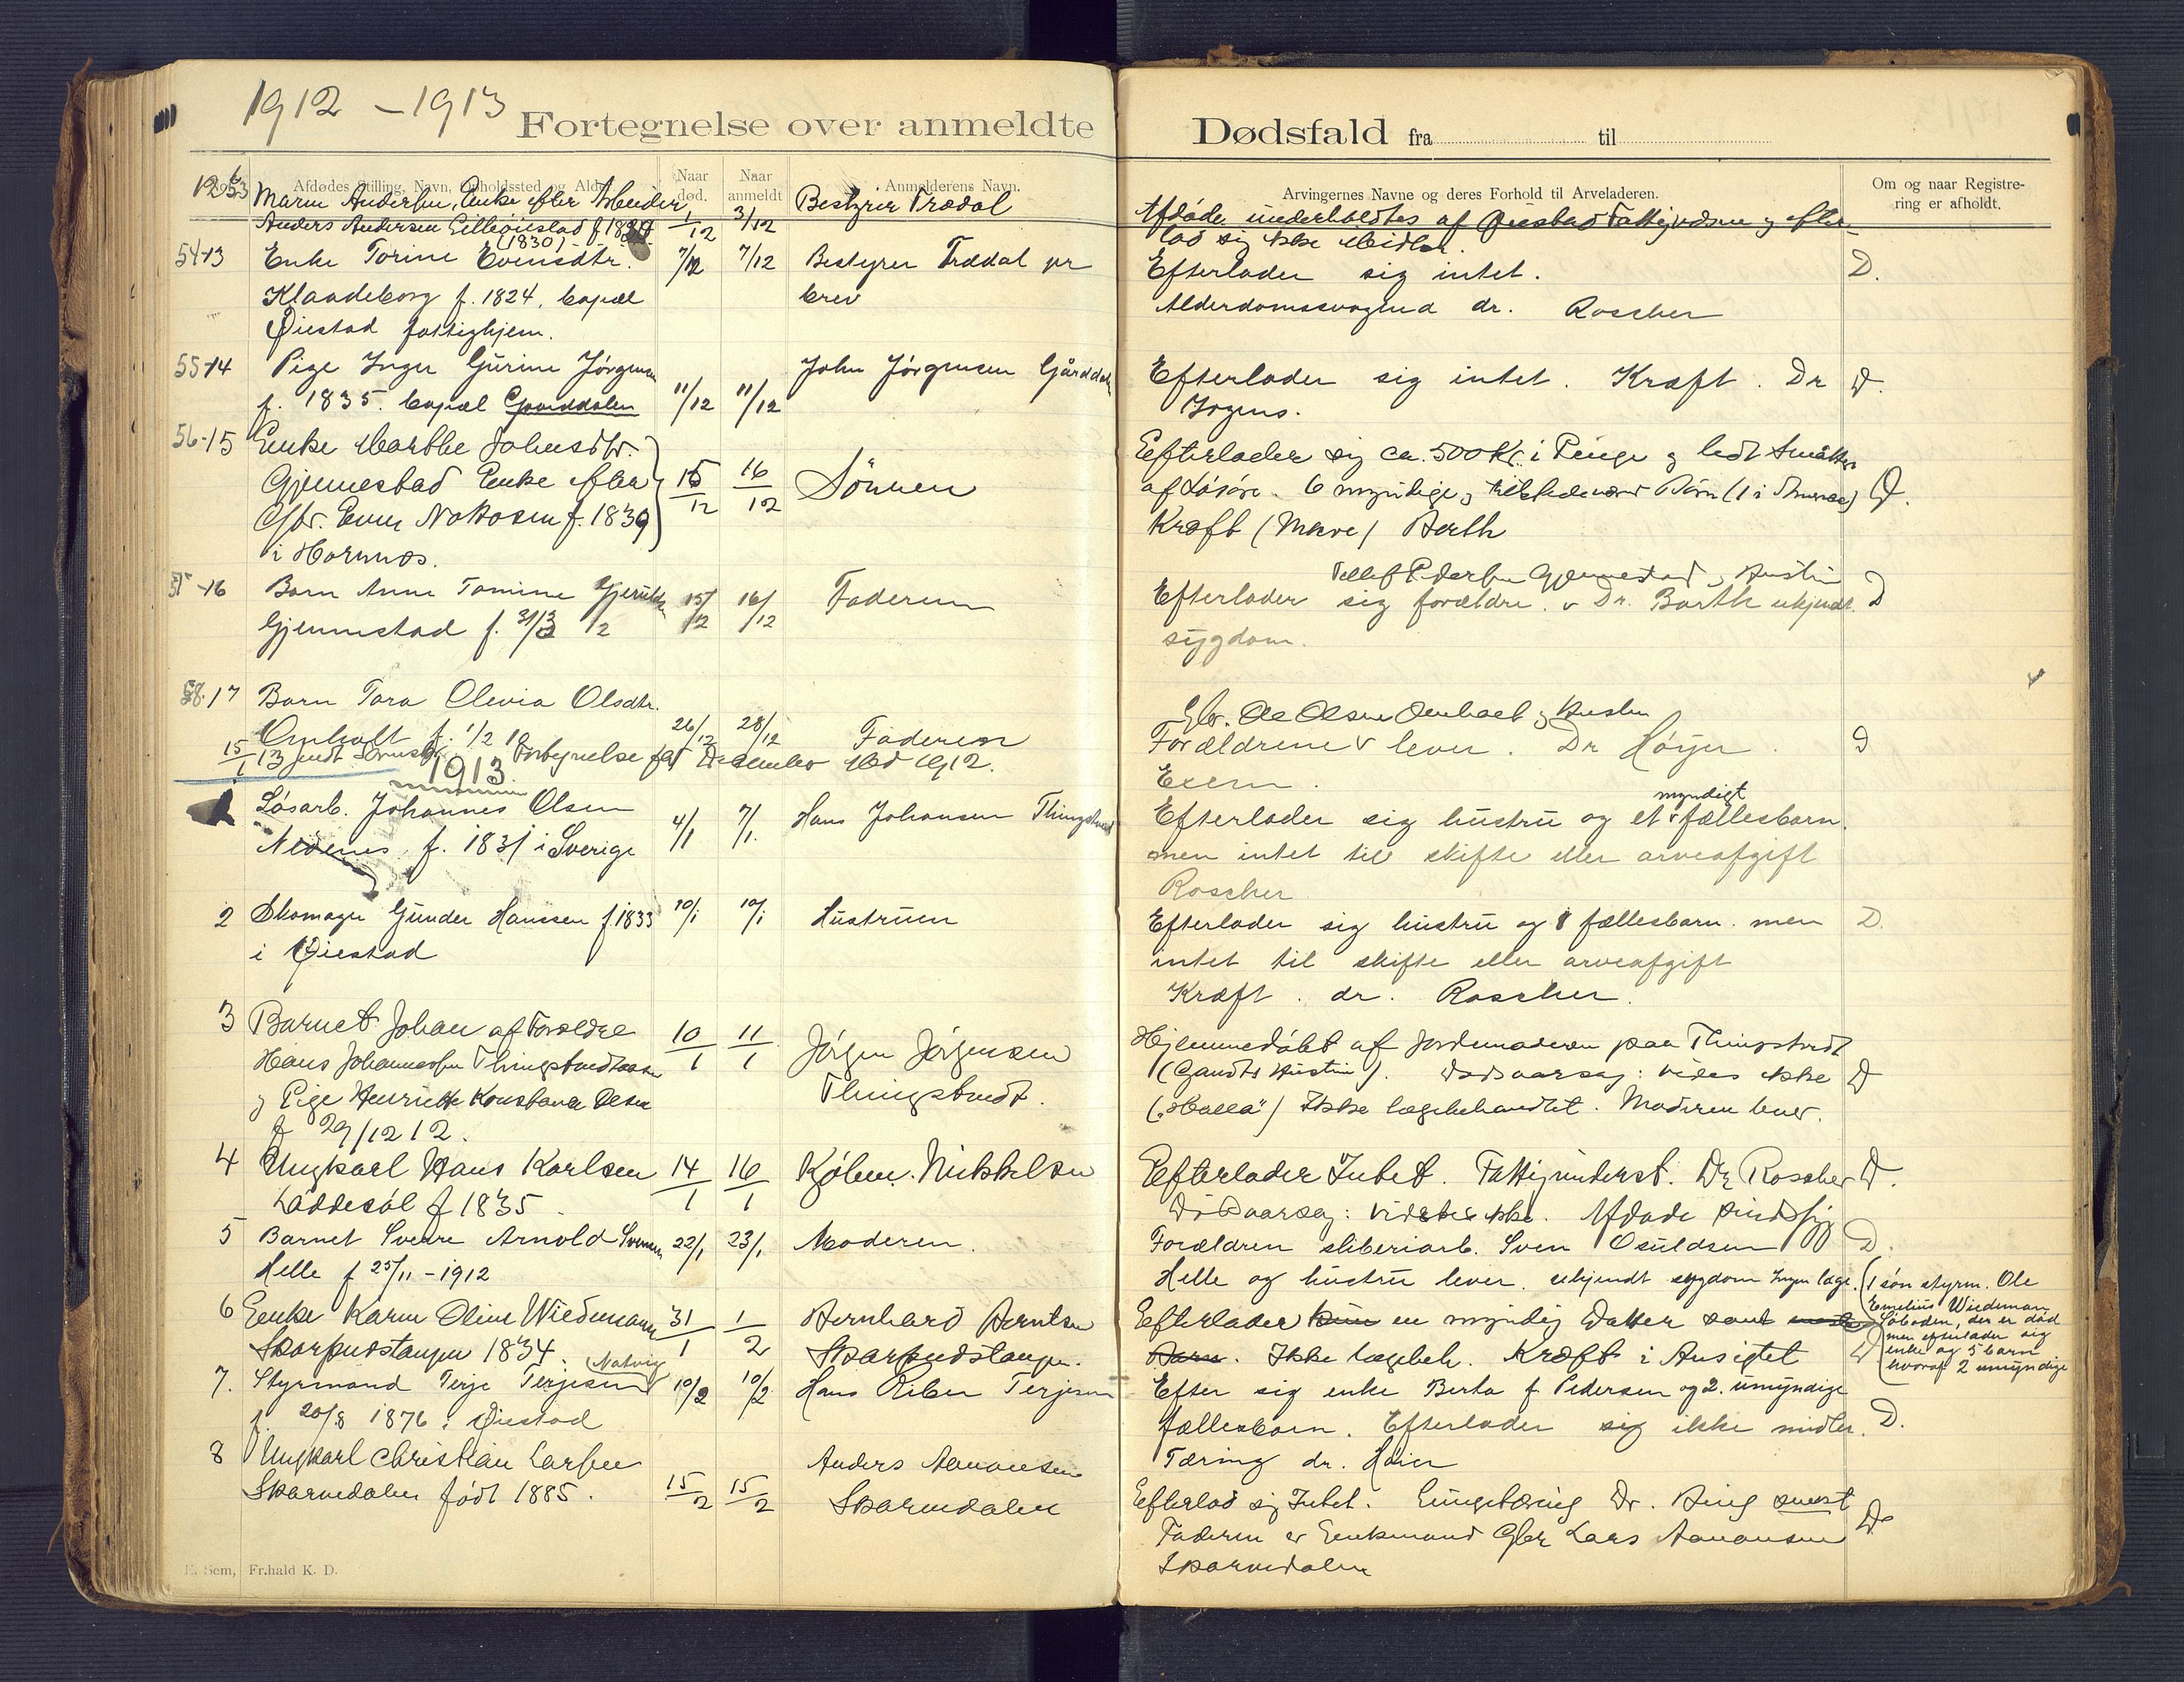 1912 - 1913
Fortegnelse over anmeldte Dødsfald fra til
Afdødes Stilling, Navn, Opholdssted og Alder.
Naar død.
Naar anmeldt
Anmelderens Navn.
Arvingernes Navne og deres Forhold til Arveladeren.
Om og naar Registre-
ring er afholdt.
Maren Andersen, Enke efter Arbeider
Anders Andersen Lilleøiestad f.
(1830)
1/12 3/12
Bestyrer Trædal
Afdøde underholdtes af Øiestad Fattigvæsen og efter-
lod sig ikke Midler.
54-13 Enke Torine Evensdtr.
Klaadeborg f. 1824, bopæl
Øiestad fattighjem.
7/12 7/12
Bestyrer Trædal pr
brev
Efterlader sig intet. D.
Alderdomssvaghed dr. Roscher
55-14 Pige Inger Gurine Jørgensen
f. 1835. bopæl Gaarddalen
11/12 11/12
John Jørgensen Gårddalen
Efterlader sig intet. Kræft. Dr D.
56-15 Enke Marthe Johnsdtr.
Gjennestad Enke efter
Gbr. Even f. 1839
i Hornnæs.
15/12 16/12
Sønnen
Efterlader sig ca. 500 Kr. i Penge og lidt Småtteri
af Løsøre. 6 myndige, tilstedeværende Børn (1 i Amerika) D.
Kræft (Mave) Barth
57-16 Barn Anne Tomine
Gjennestad f. 12
15/12 16/12
Faderen
Tellef Pedersen Gjennestad og Hustru
Efterlader sig forældre. Dr. Barth ukjendt D
sygdom.
58-17 Barn Tora Olevia Olsdtr.
Omholt f. 1/2 12
26/12 28/12
Faderen
Gbr. Ole Olsen Omholt og Hustru
Forældrene lever. Dr Høyer. D
Exem.
15/1 13 sendt Fortegnelse for December Md 1912.
1913
Løsarb. Johannes Olsen
Nedenes f. 1831 i Sverige
4/1 7/1.
Hans Johansen Thingstvedt
Efterlader sig hustru og et myndigt fællesbarn.
men intet til skifte eller arveafgift
Roscher
2 Skomager Gunder Hanssen f. 1833
i Øiestad
10/1 10/1
Hustruen
Efterlader sig hustru og 1 fællesbarn. men D.
intet til skifte eller arveafgift
Kræft. dr. Roscher.
3 Barnet Johan af Forældre
Hans Johannessen
og Pige Henriette Konstance Olsen
f 29/12 12.
10/1 11/1
Jørgen Jørgensen
Thingstvedt.
Hjemmedøbt af Jordemoderen paa Thingstvedt
(Hustru). Dødsaarsag: vides ikke D
Ikke lægebehandlet. Moderen lever.
4 Ungkarl Hans Karlsen
Laddesøl f 1835
14/1 16/1
Kjøbm. Mikkelsen
Efterlader Intet. Fattigunderst. Dr Roscher D.
Dødsaarsag: vidstes ikke. Afdøde sindssyg
5 Barnet Sverre Arnold Svensen
Helle f 25/11 - 1912
22/1 23/1.
Moderen.
Forældren sliberiarb. Sven Osuldsen D.
Helle og hustru lever. ukjendt sygdom Ingen læge.
6 Enke Karen Oline Wiedemann
Skarpnestangen 1834.
31/1 1/2
Bernhard Berntsen
Skarpnestangen.
Efterlader kun en myndig Datter samt
Barn. Ikke lægebeh. Kræft i Ansigtet D
(1 søn styrm. Ole
Emelius Wiedemann
Løboden, der er død
men efterlader sig
enke og 5 barn
hvoraf 2 umyndige
7. Styrmand Terje Terjesen Natvig
f. 20/8 1876 i Øiestad
10/2 10/2
Hans Riber Terjesen
Efter sig enke Berta f. Pedersen og 2. umyndige
fællesbørn. Efterlader sig ikke midler. D.
Tæring dr. Høier
8 Ungkarl Christian Larsen
Skarvedalen født 1885.
15/2 15/2
Anders Aanonsen
Skarvedalen
Efterlod sig Intet. Lungetæring Dr. D
Faderen er Enkemand Gbr Lars Aanonsen
Skarvedalen
E. Sem, Fr.hald K. D.